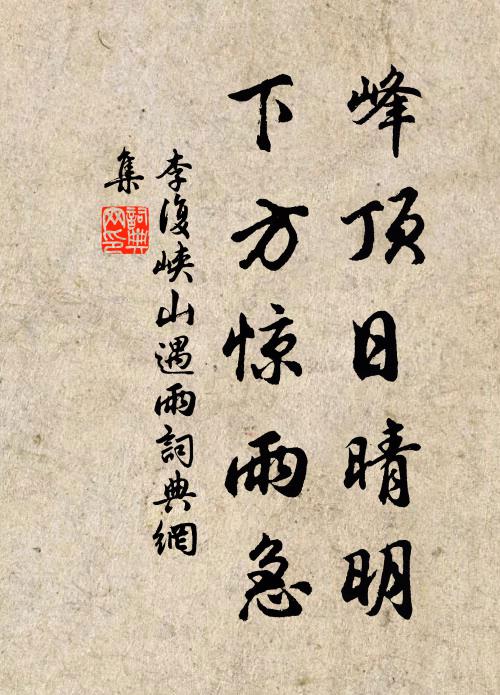 峰顶日晴明
下方惊雨急
李復峡山遇雨詞典網
集
詞典
网印